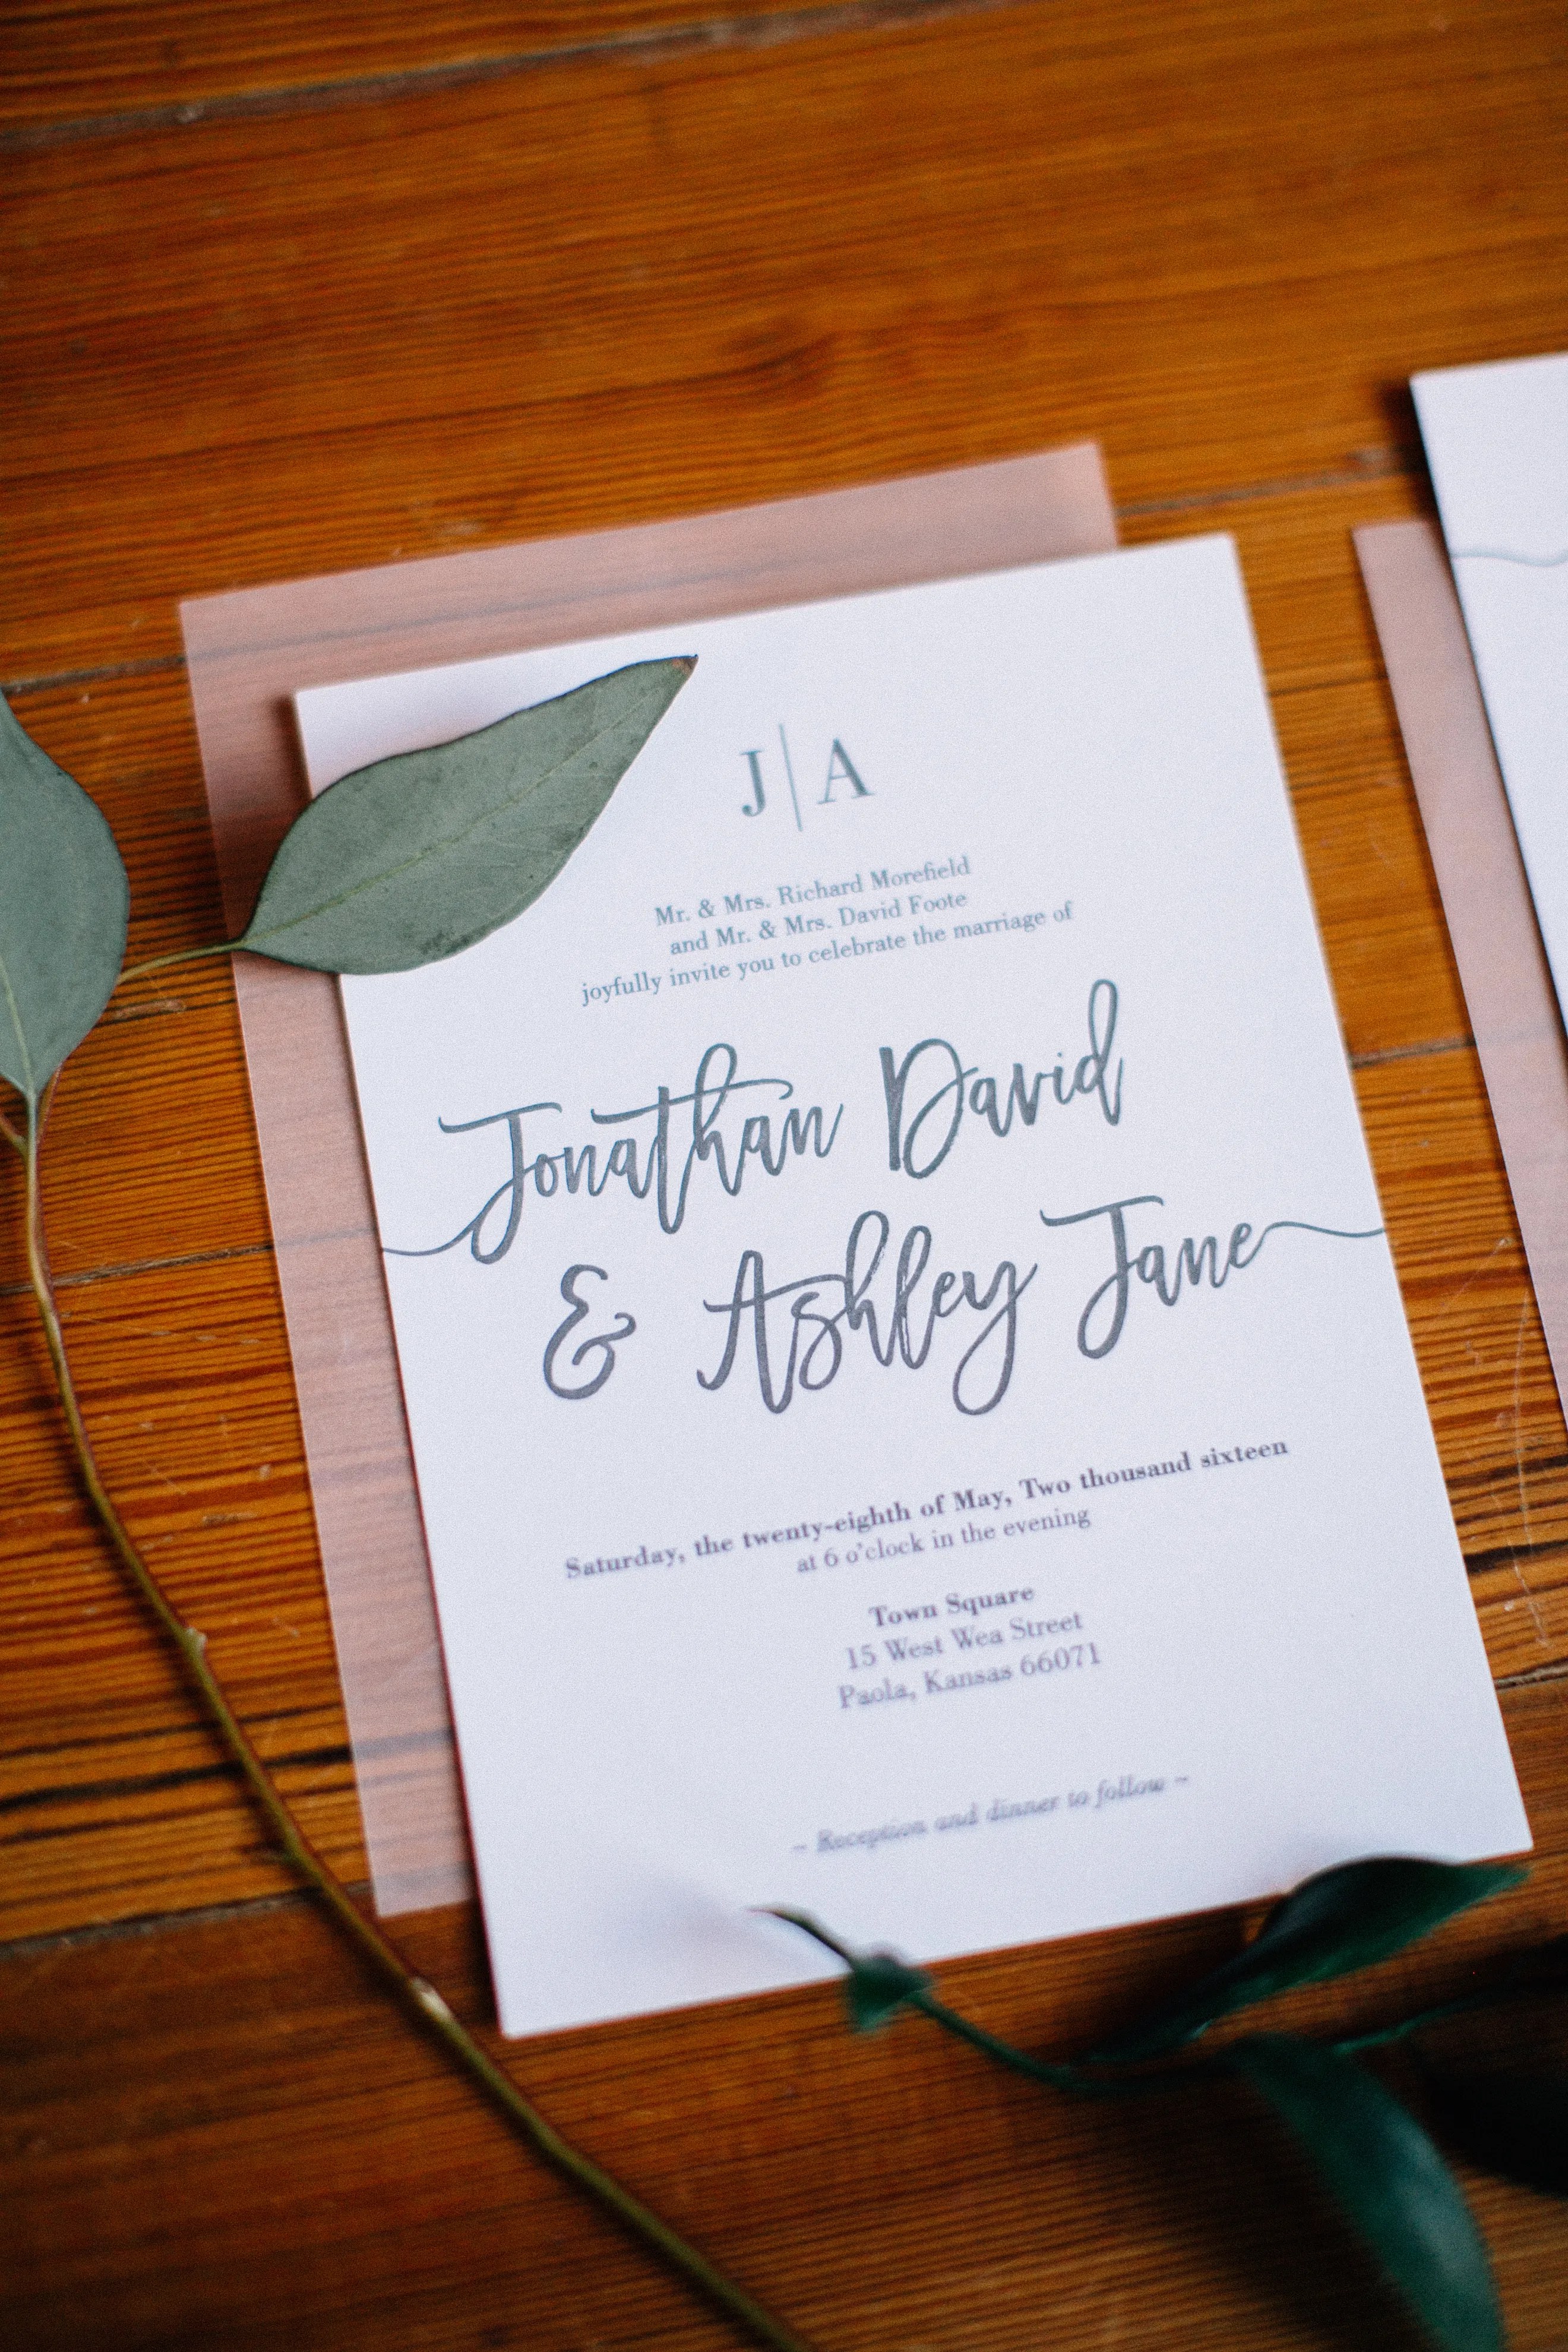 J|A
Mr. & Mrs. Richard Morefield
and Mr. & Mrs. David Foote
joyfully invite you to celebrate the marriage of
Jonathan David
& Ashley Jane
Saturday, the twenty-eighth of May, Two thousand sixteen
at 6 o'clock in the evening
Town Square
15 West Wea Street
Paola, Kansas 66071
~ Reception and dinner to follow ~